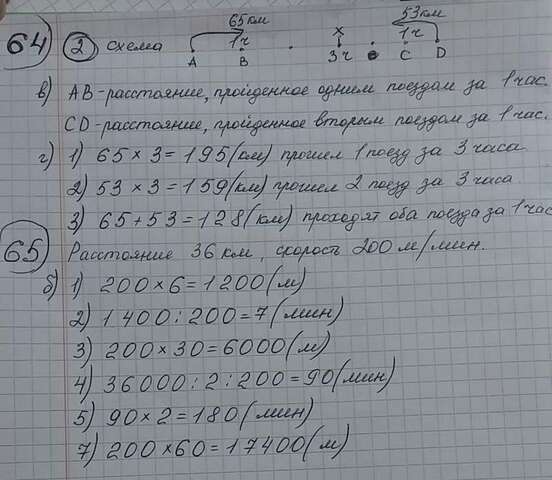 65 км 53 км
64 2 схема 1 ч х 1 ч
А В 3 ч С D
в) АВ - расстояние, пройденное одним поездом за 1 час.
CD - расстояние, пройденное вторым поездом за 1 час.
г) 1) 65 × 3 = 195 (км) прошел 1 поезд за 3 часа
2) 53 × 3 = 159 (км) прошел 2 поезд за 3 часа
3) 65 + 53 = 128 (км) проходят оба поезда за 1 час
65 Расстояние 36 км, скорость 200 м/мин.
б) 1) 200 × 6 = 1200 (м)
2) 1 400 : 200 = 7 (мин)
3) 200 × 30 = 6000 (м)
4) 36000 : 2 : 200 = 90 (мин)
5) 90 × 2 = 180 (мин)
7) 200 × 60 = 17400 (м)